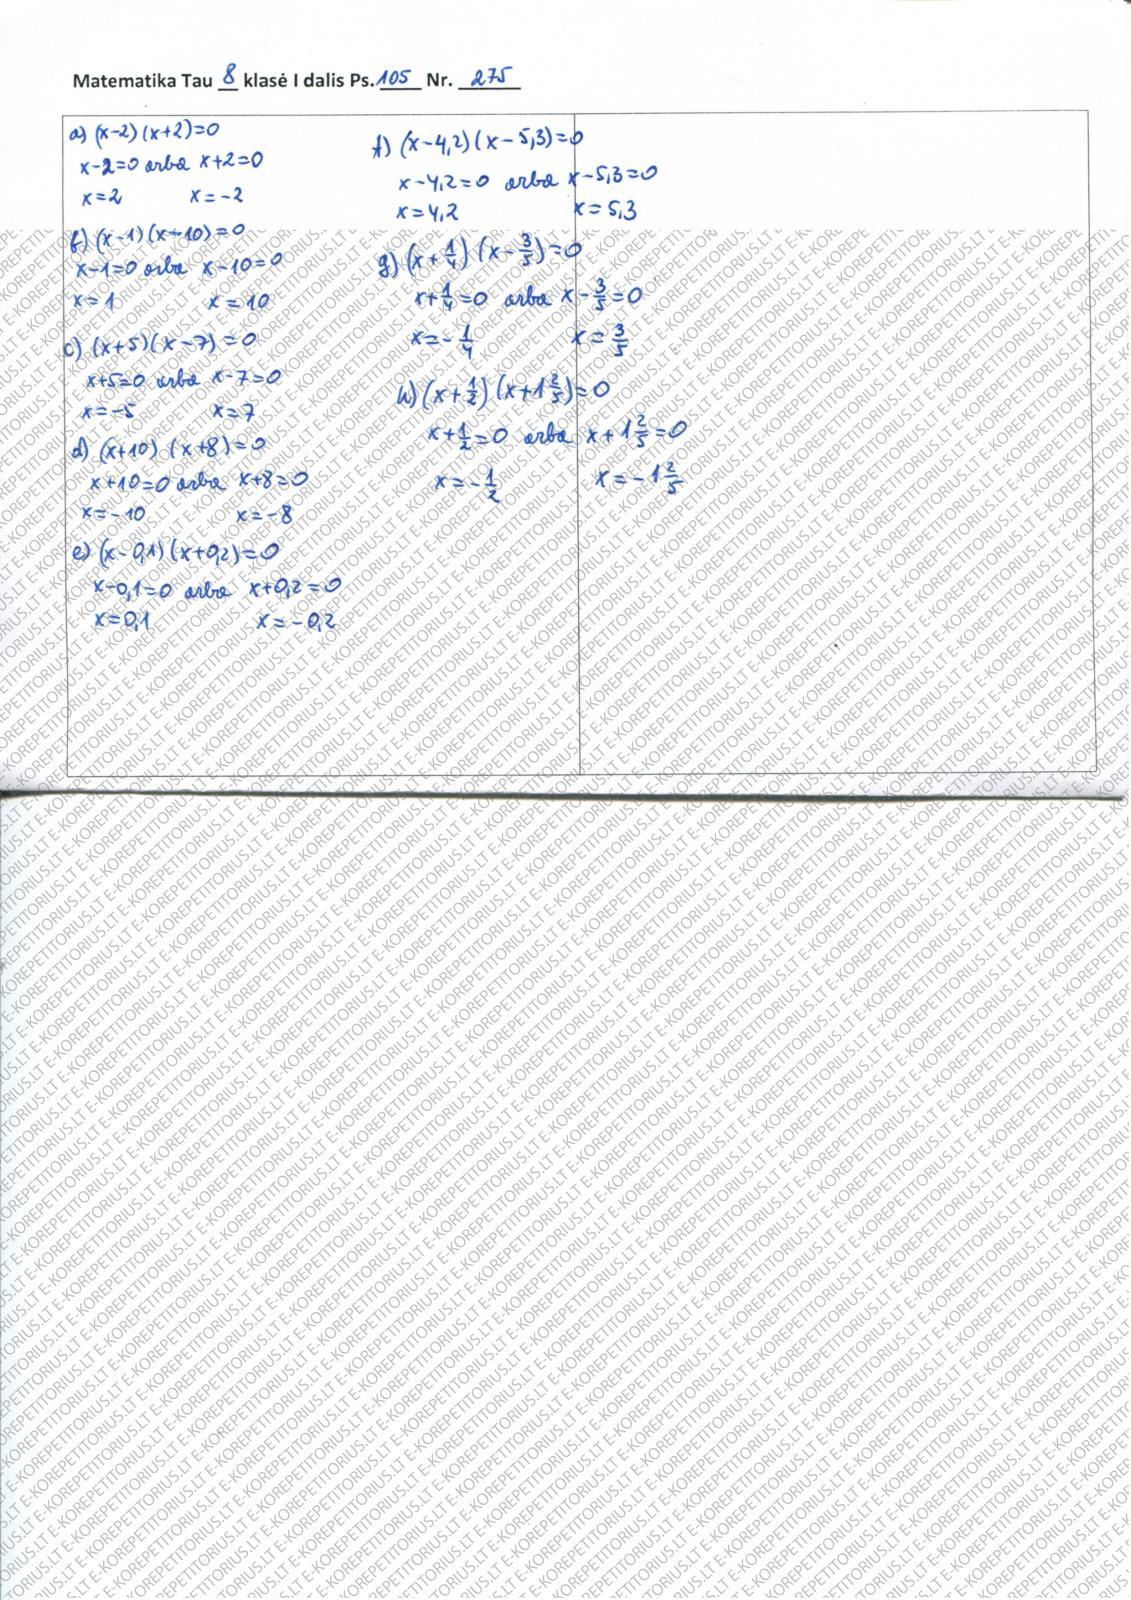 Matematika Tau 8 klasė I dalis Ps. 105 Nr. 275
a) (x-2)(x+2)=0
x-2=0 arba x+2=0
x=2 x=-2
b) (x-1)(x-10)=0
x-1=0 arba x-10=0
x=1 x=10
c) (x+5)(x-7)=0
x+5=0 arba x-7=0
x=-5 x=7
d) (x+10)(x+8)=0
x+10=0 arba x+8=0
x=-10 x=-8
e) (x-0,1)(x+0,2)=0
x-0,1=0 arba x+0,2=0
x=0,1 x=-0,2
f) (x-4,2)(x-5,3)=0
x-4,2=0 arba x-5,3=0
x=4,2 x=5,3
g) (x+1/4)(x-3/5)=0
x+1/4=0 arba x-3/5=0
x=-1/4 x=3/5
h) (x+1/2)(x+1 2/5)=0
x+1/2=0 arba x+1 2/5=0
x=-1/2 x=-1 2/5
E-KOREPETITORIUS.LT